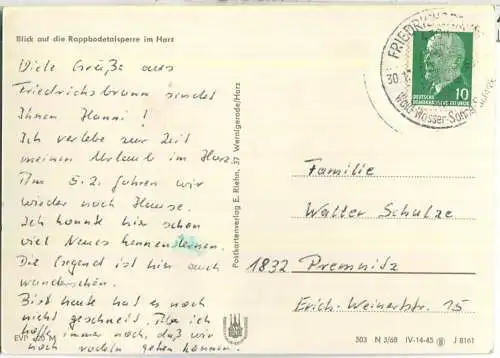 Blick auf die Rappbodetalsperre im Harz
Viele Grüße aus
Friedrichsbrunn sendet
Ihnen Hanni!
Ich verlebe zur Zeit
meinen Urlaub im Harz.
Am 5.2. fahren wir
wieder nach Hause.
Ich konnte hier schon
viel Neues kennenlernen.
Die Gegend ist hier auch
wunderschön.
Bist heute hat es noch
nicht geschneit. Aber ich
hoffe immer noch, daß wir
noch rodeln gehen können.
EVP 0,20 M
Postkartenverlag E. Riehn, 37 Wernigerode/Harz
FRIEDRICHSBRUNN
30.1.
Wald-Wasser-Sonne
10
DEUTSCHE
DEMOKRATISCHE REPUBLIK
Familie
Walter Schulze
1832 Premnitz
Erich-Weinertstr. 15
303 N 3/68 IV-14-45 J 8161